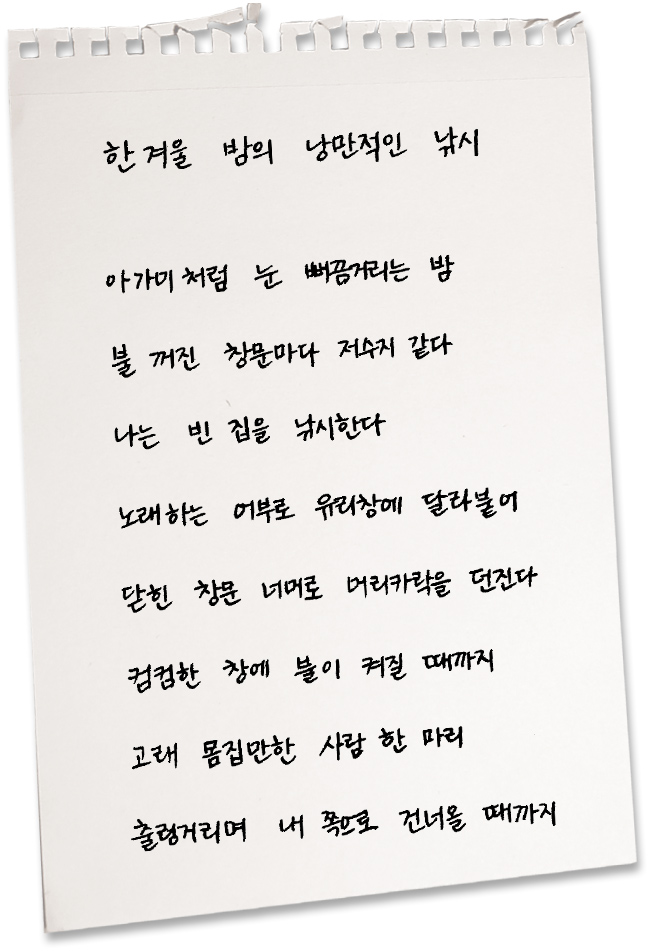 한겨울 밤의 낭만적인 낚시
아가미처럼 눈 뻐끔거리는 밤
불 꺼진 창문마다 저수지 같다
나는 빈 집을 낚시한다
노래하는 어부로 유리창에 달라붙어
닫힌 창문 너머로 머리카락을 던진다
컴컴한 창에 불이 켜질 때까지
고래 몸집만한 사람 한 마리
출렁거리며 내 쪽으로 건너올 때까지